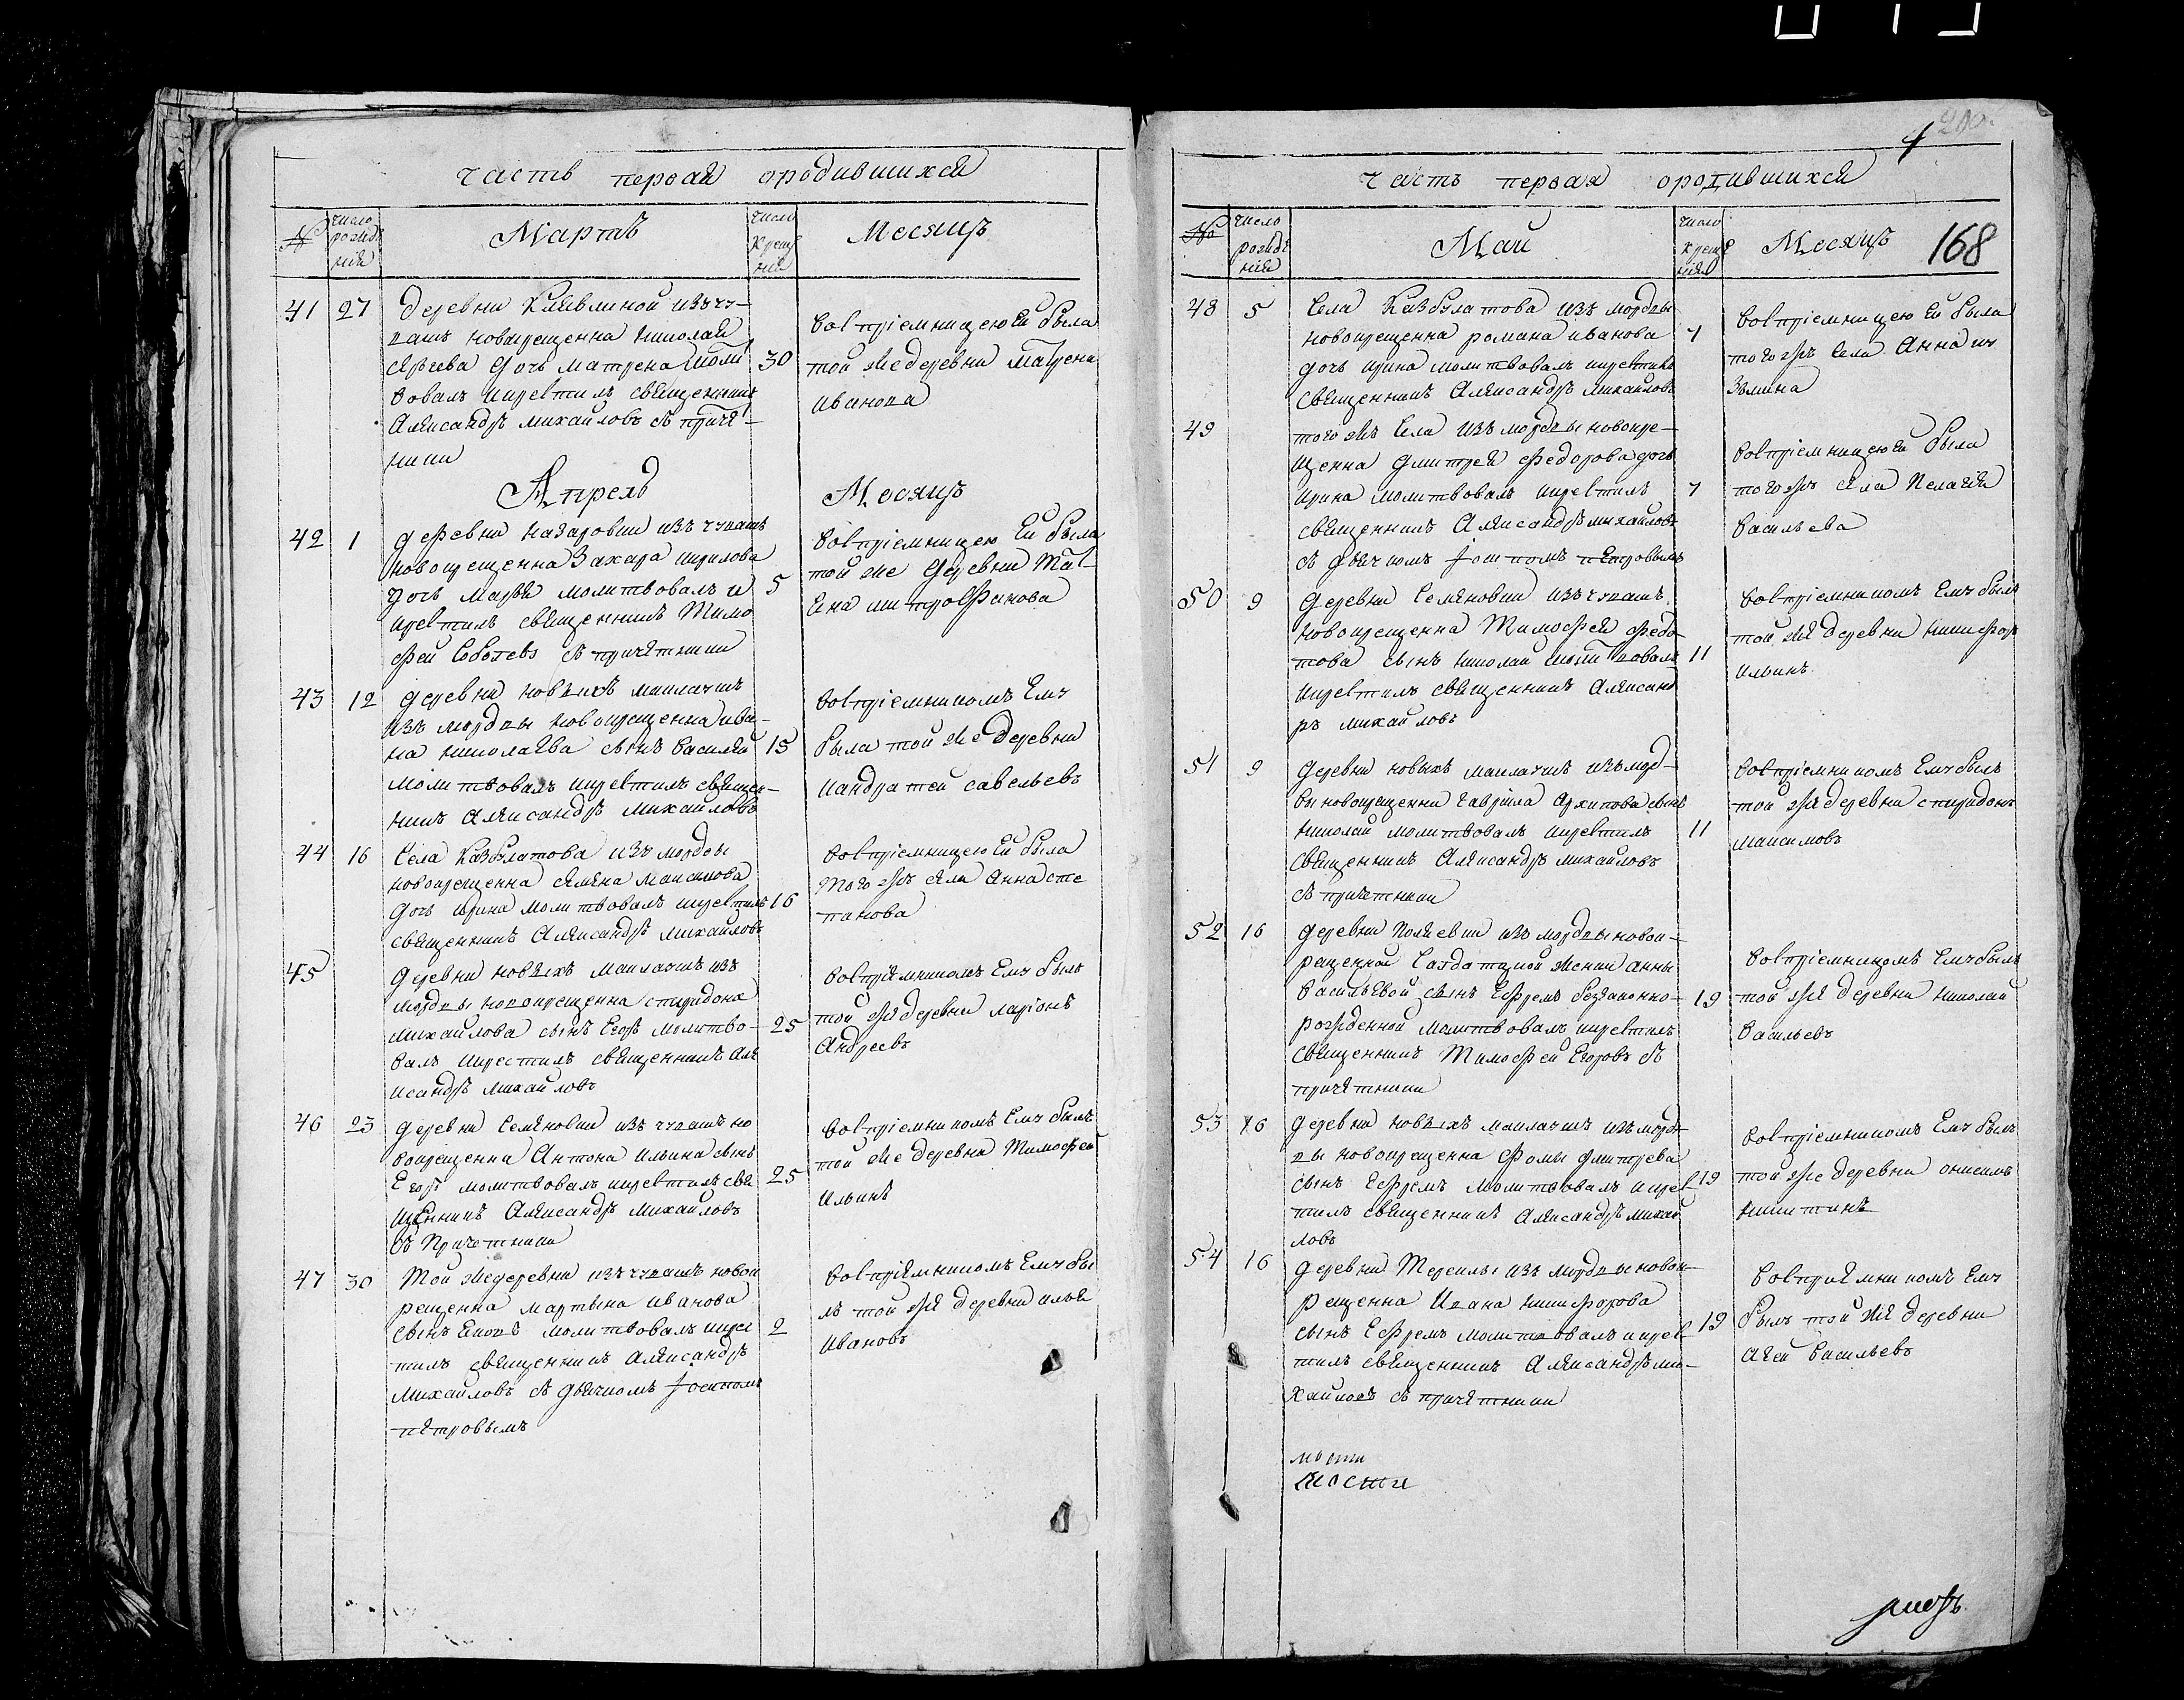 часть первая ородившихся
№
число рожде ния
Мартъ
число креще ния
Месяцъ
41 27 деревни Клявлиной изъ чу-
вашъ новокрещенна Николая
Сяргева дочь матрена моли
30
вовалъ икрестилъ священникъ
Аляксандръ михайловъ съ причет-
ники
восприемницею Ей была
той же деревни матрена
иванова
Апрель Месяцъ
42 1 деревни назаровки изъ чувашъ
новокрещенна Захара кирилова
дочь марья молитвовалъ и 5
крестилъ священникъ Тимо
фей Соболевъ съ причетники
восприемницею Ей была
той же деревни Тат
яна митрофанова
43 12 деревни новыхъ маклаушъ
изъ мордвы новокрещенна ива-
на николаева сынъ василей 15
молитвовалъ икрестилъ священ-
никъ Аляксандръ михайловъ
восприемникомъ Ему
была той же деревни
кандратей савельевъ
44 16 села Казбулатова изъ мордвы
новокрещенна сямена максимова
дочь ирина молитвовалъ икрестилъ 16
священникъ Аляксандръ михайловъ
восприемницею Ей была
того жъ села Анна сте
панова
45 деревни новыхъ маклаушъ изъ
мордвы новокрещенна спиридона
михайлова сынъ Егоръ молитво- 25
валъ икрестилъ священникъ Аля
ксандръ михайловъ
восприемникомъ Ему былъ
той жя деревни ларионъ
Андреевъ
46 23 деревни Семяновки изъ чувашъ но
вокрещенна Антона ильина сынъ
Егоръ молитвовалъ икрестилъ свя 25
щенникъ Аляксандръ михайловъ
съ Причетники
восприемникомъ Ему былъ
той же деревни Тимофей
ильинъ
47 30 Той жедеревни изъ чувашъ новок
рещенна мартына иванова
сынъ Яковъ молитвовалъ икрес 2
тилъ священникъ Аляксандръ
михайловъ съ дьячкомъ Iосипомъ
пятровымъ
восприямникомъ Ему бы
лъ той жя деревни илья
ивановъ
часть первая ородившихся
№
число рожде ния
Май
число креще ния
Месяцъ 168
48 5 Села Казбулатова изъ мордвы
новокрещенна романа иванова 7
дочь ирина молитвовалъ икрестилъ
священникъ Аляксандръ михайловъ
восприемницею Ей была
того жъ села Анна
49 того жъ села изъ мордвы новокре-
щенна дмитрея федорова дочь
ирина молитвовалъ икрестилъ 7
священникъ Аляксандръ михайловъ
съ дьячкомъ Iосипомъ пятровымъ
восприемницею ей была
того жъ села Пелагея
васильева
50 9 деревни Семяновки изъ чувашъ
новокрещенна Тимофея федо-
това сынъ николай молитвовалъ 11
икрестилъ священникъ Аляксанд
ръ михайловъ
восприемникомъ Ему былъ
той жя деревни никифоръ
ильинъ
51 9 деревни новыхъ маклаушъ изъ морд-
вы новокрещенна гаврiила архипова сынъ
николай молитвовалъ икрестилъ 11
священникъ Аляксандръ михайловъ
съ причетники
восприемникомъ Ему былъ
той жя деревни спиридонъ
максимовъ
52 16 деревни изъ мордвы новок-
рещенной Салдатцкой женки анны
васильевой сынъ Ефремъ беззаконно- 19
рожденной молитвовалъ икрестилъ
священникъ Тимофей Егоровъ съ
причятники
восприемникомъ Ему былъ
той жя деревни николай
васильевъ
53 16 деревни новыхъ маклаушъ изъ морд-
вы новокрещенна фомы дмитрева
сынъ Ефремъ молитвовалъ икрес 19
тилъ священникъ Аляксандръ михай
ловъ
восприемникомъ Ему былъ
той же деревни онисимъ
никитинъ
54 16 деревни изъ мордвы новок-
рещенна Ивана никифорова
сынъ Ефремъ молитвовалъ икрес 19
тилъ священникъ Аляксандръ ми-
хайловъ съ причятники
восприямникомъ Ему
былъ той жя деревни
васильевъ